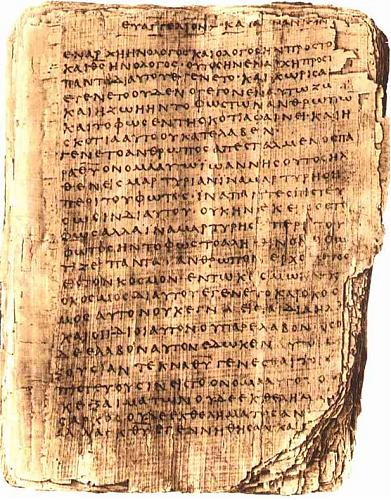 ΕΥΑΓΓΕΛΙΟΝ ΚΑΤΑ ΙΩΑΝΝΗΝ
ΕΝΑΡΧΗΗΝΟΛΟΓΟΣΚΑΙΟΛΟΓΟΣΗΝΠΡΟΣΤΟ
ΚΑΙΘΣΗΝΟΛΟΓΟΣΟΥΤΟΣΗΝΕΝΑΡΧΗΠΡΟΣ
ΠΑΝΤΑΔΙΑΥΤΟΥΕΓΕΝΕΤΟΚΑΙΧΩΡΙΣΑ
ΕΓΕΝΕΤΟΟΥΔΕΝΟΓΕΓΟΝΕΝΑΥΤΩΖΩ
ΚΑΙΗΖΩΗΗΝΤΟΦΩΣΤΩΝΑΝΘΡΩΠΩ
ΚΑΙΤΟΦΩΣΕΝΤΗΣΚΟΤΙΑΦΑΙΝΕΙΚΑΙΗ
ΣΚΟΤΙΑΑΥΤΟΟΥΚΑΤΕΛΑΒΕΝ
ΕΓΕΝΕΤΟΑΝΘΡΩΠΟΣΑΠΕΣΤΑΛΜΕΝΟΣΠΑ
ΡΑΘΥΟΝΟΜΑΑΥΤΩΙΩΑΝΝΗΣΟΥΤΟΣΗΛ
ΘΕΝΕΙΣΜΑΡΤΥΡΙΑΝΙΝΑΜΑΡΤΥΡΗΣΗ
ΠΕΡΙΤΟΥΦΩΤΟΣΙΝΑΠΑΝΤΕΣΠΙΣΤΕΥ
ΣΩΣΙΝΔΙΑΥΤΟΥΟΥΚΗΝΕΚΕΙΝΟΣΤΟ
ΦΩΣΑΛΛΑΙΝΑΜΑΡΤΥΡΗΣΗΠΕΡΙΤΟΥ
ΦΩΤΟΣΗΝΤΟΦΩΣΤΟΑΛΗΘΙΝΟΝΟΦΩ
ΤΙΖΕΙΠΑΝΤΑΑΝΘΡΩΠΟΝΕΡΧΟΜΕΝΟΝ
ΕΙΣΤΟΝΚΟΣΜΟΝΕΝΤΩΚΟΣΜΩΗΝ
ΟΚΟΣΜΟΣΔΙΑΥΤΟΥΕΓΕΝΕΤΟΚΑΙΟΚΟΣ
ΜΟΣΑΥΤΟΝΟΥΚΕΓΝΩΕΙΣΤΑΙΔΙΑΗΛΘΕ
ΚΑΙΟΙΙΔΙΟΙΑΥΤΟΝΟΥΠΑΡΕΛΑΒΟΝΟΣΟΙ
ΔΕΕΛΑΒΟΝΑΥΤΟΝΕΔΩΚΕΝΑΥΤΟΙΣ
ΕΞΟΥΣΙΑΝΤΕΚΝΑΘΥΓΕΝΕΣΘΑΙΤΟΙΣ
ΠΙΣΤΕΥΟΥΣΙΝΕΙΣΤΟΟΝΟΜΑΑΥΤΟΥΟΙ
ΟΥΚΕΞΑΙΜΑΤΩΝΟΥΔΕΕΚΘΕΛΗΜΑ
ΣΑΡΚΟΣΟΥΔΕΕΚΘΕΛΗΜΑΤΟΣΑΝ
ΑΛΛΑΕΚΘΥΕΓΕΝΝΗΘΗΣΑΝΚΑΙ